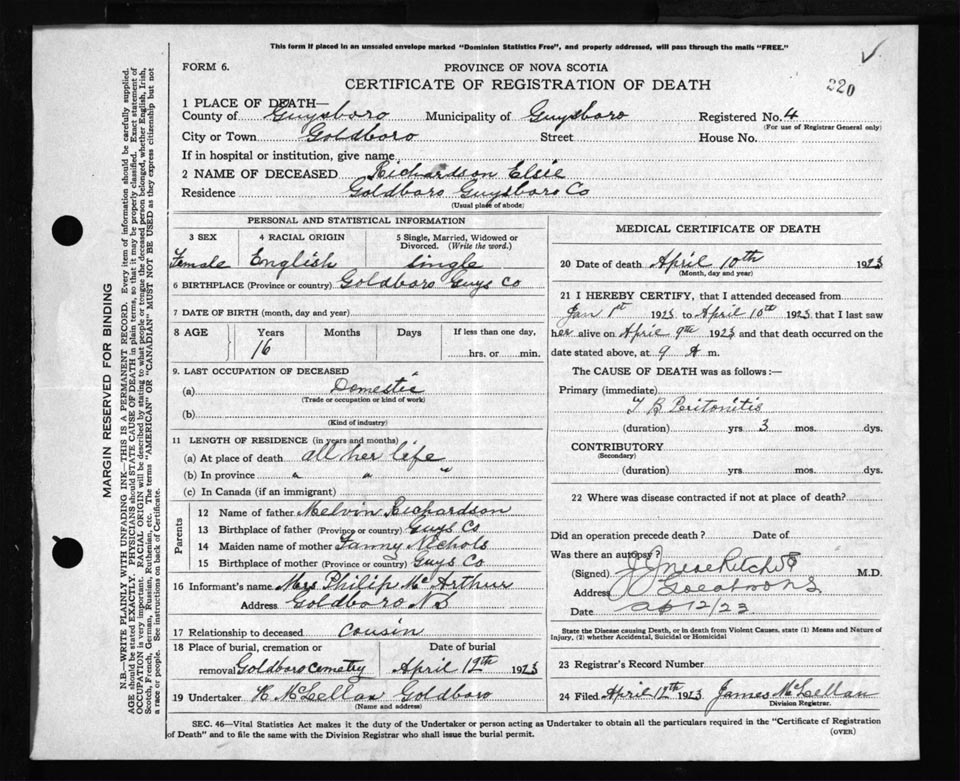 This form if placed in an unsealed envelope marked "Dominion Statistics Free", and properly addressed, will pass through the mails "FREE."
FORM 6.
PROVINCE OF NOVA SCOTIA
CERTIFICATE OF REGISTRATION OF DEATH
220
1 PLACE OF DEATH—
County of Guysboro Municipality of Guysboro Registered No. 4
(For use of Registrar General only)
City or Town Goldboro Street House No.
If in hospital or institution, give name
2 NAME OF DECEASED Richardson Elsie
Residence Goldboro Guysboro Co
(Usual place of abode)
MARGIN RESERVED FOR BINDING
N.B.—WRITE PLAINLY WITH UNFADING INK—THIS IS A PERMANENT RECORD. Every item of information should be carefully supplied.
AGE should be stated EXACTLY. PHYSICIANS should STATE CAUSE OF DEATH in plain terms, so that it may be properly classified. Exact statement of
OCCUPATION is very important. RACIAL ORIGIN will be described by stating to what people or tongue the deceased person belonged, whether English, Irish,
Scotch, French, German, Russian, Ruthenian, etc. The terms "AMERICAN" OR "CANADIAN" MUST NOT BE USED as they express citizenship but not
a race or people. See instructions on back of Certificate.
PERSONAL AND STATISTICAL INFORMATION
3 SEX
4 RACIAL ORIGIN
5 Single, Married, Widowed or
Divorced. (Write the word.)
Female English Single
6 BIRTHPLACE (Province or country) Goldboro Guys Co
7 DATE OF BIRTH (month, day and year)
8 AGE Years Months Days If less than one day,
16 hrs. or min.
9. LAST OCCUPATION OF DECEASED
(a) Domestic
(Trade or occupation or kind of work)
(b)
(Kind of industry)
11 LENGTH OF RESIDENCE (in years and months)
(a) At place of death all her life
(b) In province " " "
(c) In Canada (if an immigrant)
Parents
12 Name of father Melvin Richardson
13 Birthplace of father (Province or country) Guys Co
14 Maiden name of mother Fanny Nichols
15 Birthplace of mother (Province or country) Guys Co
16 Informant's name Mrs Philip McArthur
Address Goldboro N S
17 Relationship to deceased cousin
18 Place of burial, cremation or Date of burial
removal Goldboro Cemetry April 12th 1923
19 Undertaker McLellan Goldboro
(Name and address)
MEDICAL CERTIFICATE OF DEATH
20 Date of death April 10th 1923
(Month, day and year)
21 I HEREBY CERTIFY, that I attended deceased from
Jan 1st 1923 to April 10th 1923 that I last saw
her alive on April 9th 1923 and that death occurred on the
date stated above, at 9 A m.
The CAUSE OF DEATH was as follows:—
Primary (immediate)
T B Peritonitis
(duration) yrs 3 mos. dys.
CONTRIBUTORY
(Secondary)
(duration) yrs. mos. dys.
22 Where was disease contracted if not at place of death?
Did an operation precede death? Date of
Was there an autopsy?
(Signed) M.D.
Address
Date Ap 12/23
State the Disease causing Death, or in death from Violent Causes, state (1) Means and Nature of
Injury, (2) whether Accidental, Suicidal or Homicidal
23 Registrar's Record Number
24 Filed April 12th 1923 James McLellan
Division Registrar.
SEC. 46—Vital Statistics Act makes it the duty of the Undertaker or person acting as Undertaker to obtain all the particulars required in the "Certificate of Registration
of Death" and to file the same with the Division Registrar who shall issue the burial permit.
(OVER)